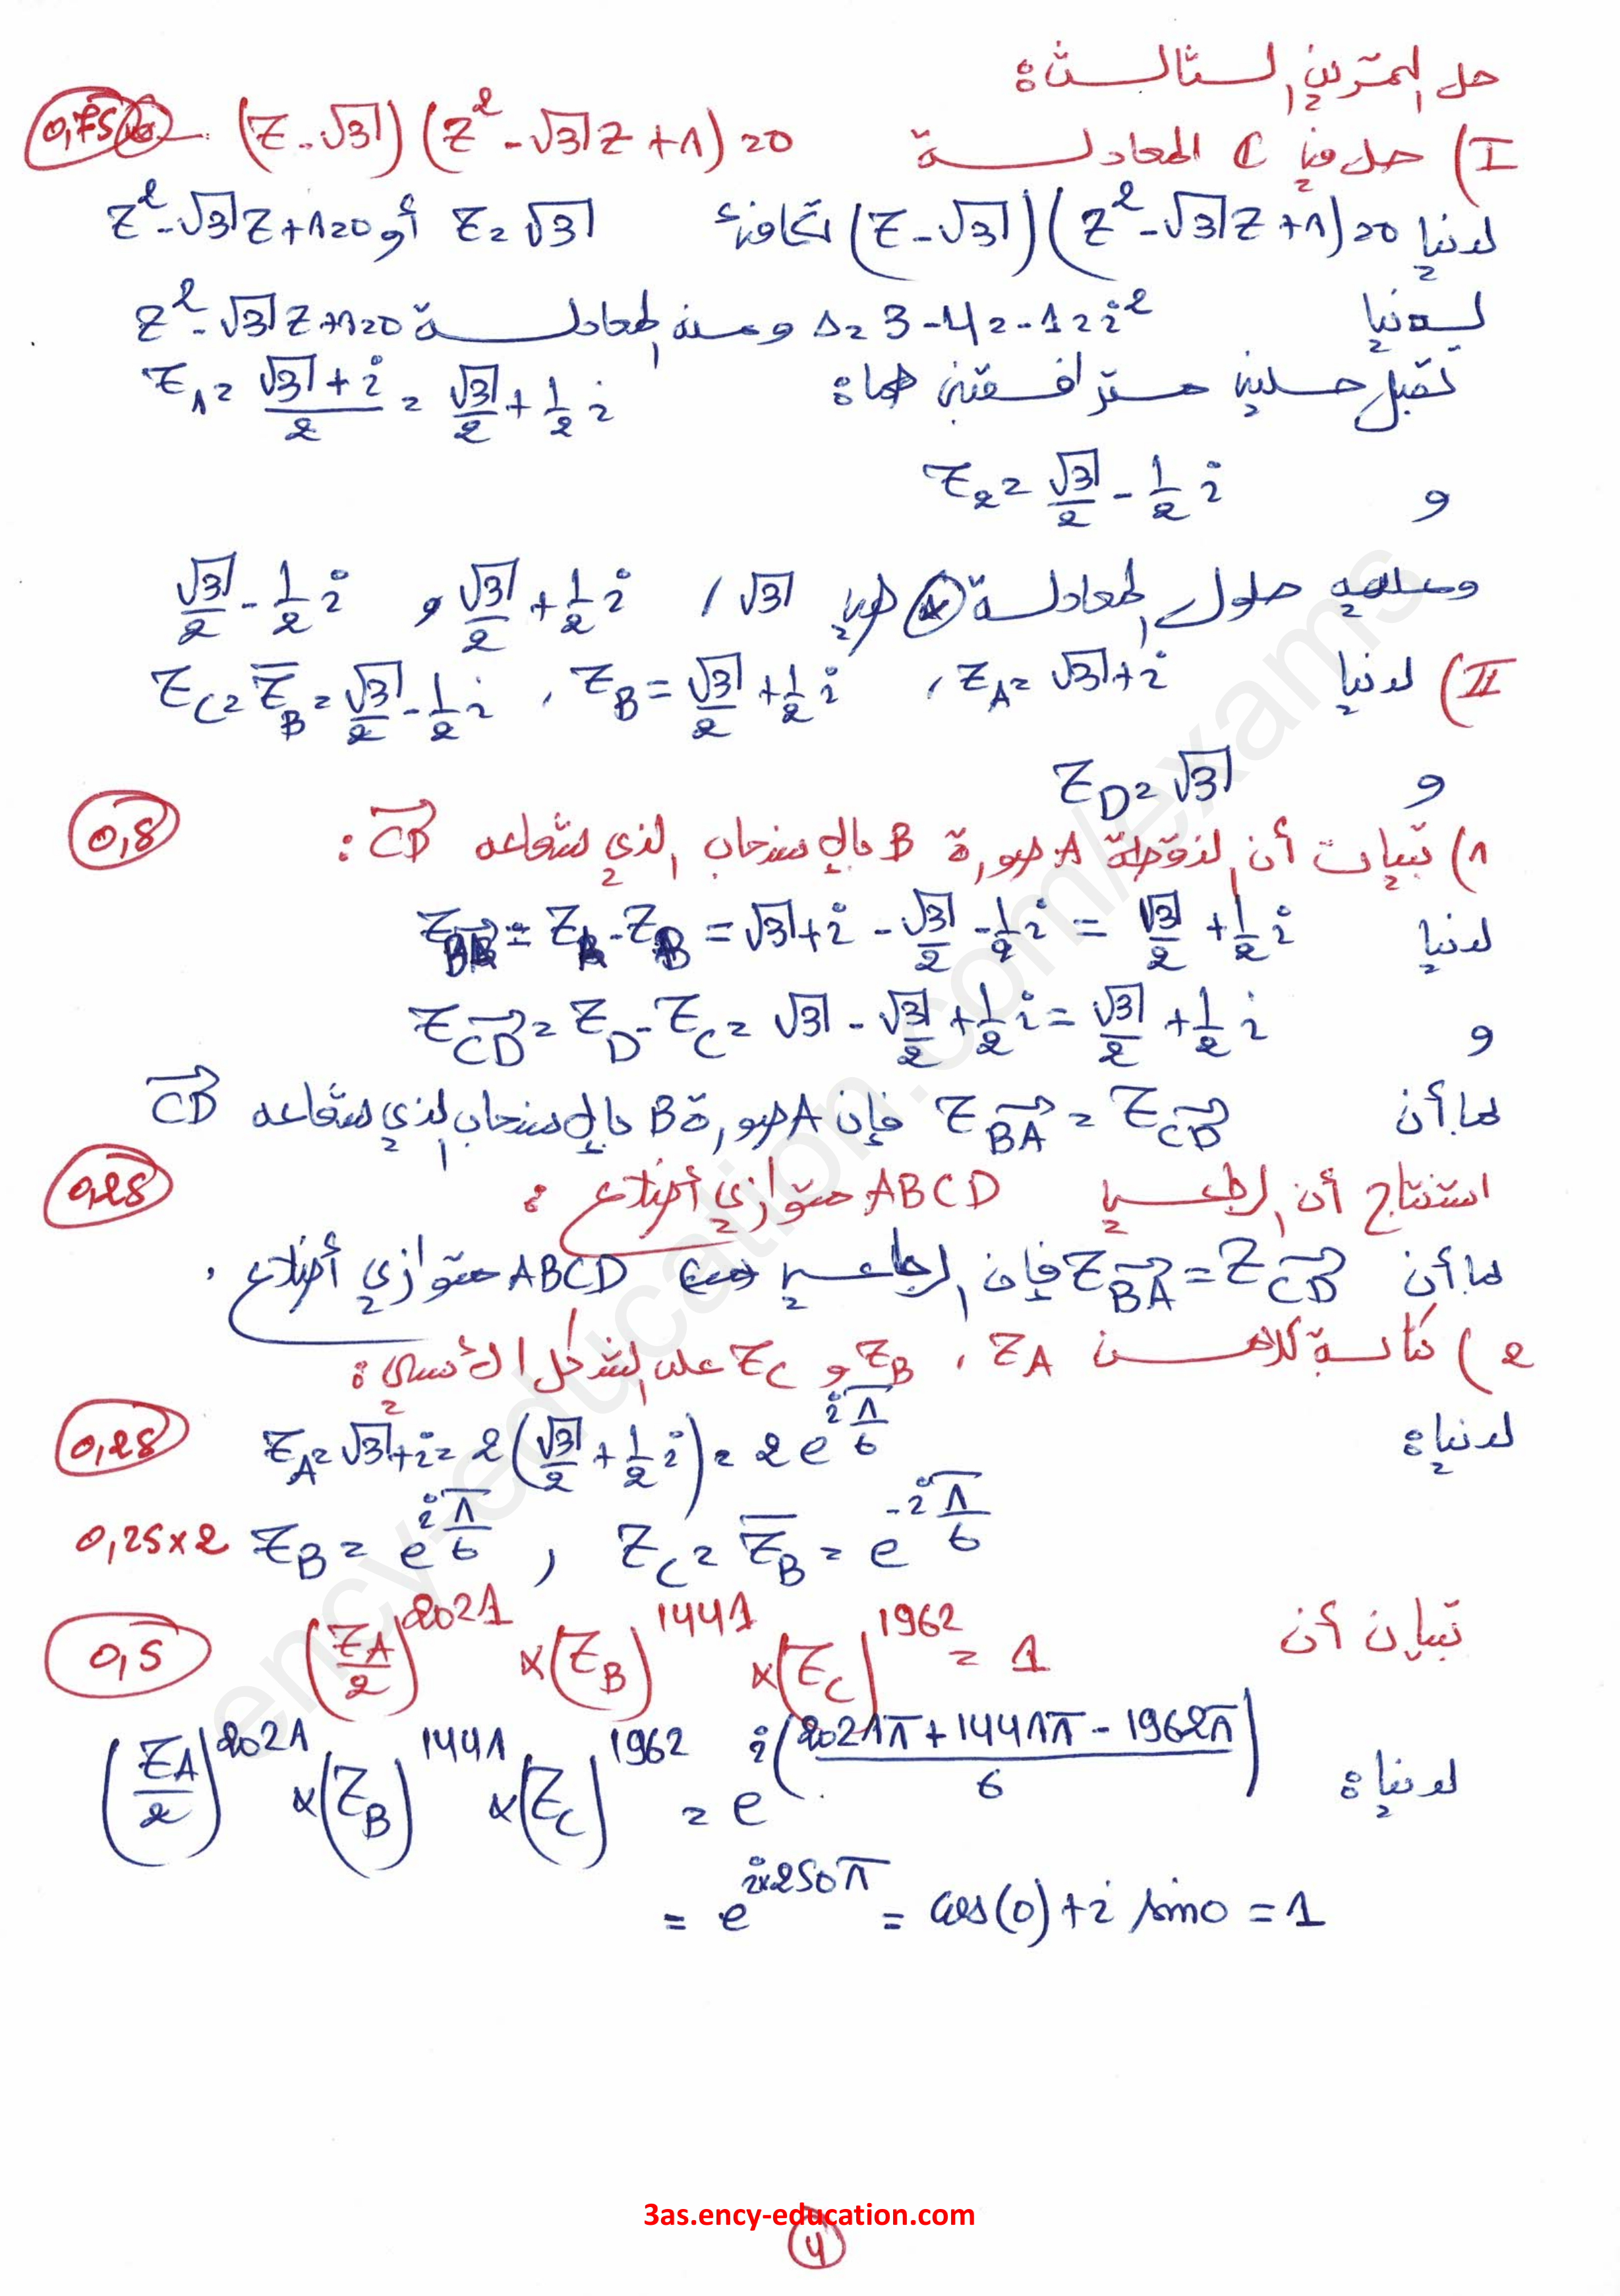 حل التمرين الثالث:
I) حل في C المعادلة (Z-√3)(Z²-√3Z+1)=0 0,75
لدينا (Z-√3)(Z²-√3Z+1)=0 تكافئ Z=√3 أو Z²-√3Z+1=0
لدينا Δ=3-4=-1=i² ومنه المعادلة Z²-√3Z+1=0
تقبل حلين مترافقين هما: Z₁=(√3+i)/2=√3/2+1/2 i
و Z₂=√3/2-1/2 i
وعليه حلول المعادلة (*) هي √3 , √3/2+1/2 i و √3/2-1/2 i
II) لدينا Z_A=√3+i , Z_B=√3/2+1/2 i , Z_C=Z̄_B=√3/2-1/2 i
و Z_D=√3
1) تبيان أن النقطة A صورة B بالإنسحاب الذي شعاعه CD⃗ : 0,5
لدينا Z_BA⃗=Z_A-Z_B=√3+i-√3/2-1/2 i=√3/2+1/2 i
و Z_CD⃗=Z_D-Z_C=√3-√3/2+1/2 i=√3/2+1/2 i
بما أن Z_BA⃗=Z_CD⃗ فإن A صورة B بالإنسحاب الذي شعاعه CD⃗
استنتاج أن الرباعي ABCD متوازي أضلاع : 0,25
بما أن Z_BA⃗=Z_CD⃗ فإن الرباعي ABCD متوازي أضلاع .
2) كتابة كلا من Z_A , Z_B و Z_C على الشكل الأسي :
لدينا: Z_A=√3+i=2(√3/2+1/2 i)=2e^(iπ/6) 0,25
Z_B=e^(iπ/6) , Z_C=Z̄_B=e^(-iπ/6) 0,25×2
تبيان أن (Z_A/2)^2021 ×(Z_B)^1441 ×(Z_C)^1962 = 1 0,5
لدينا: (Z_A/2)^2021 ×(Z_B)^1441 ×(Z_C)^1962 = e^(i(2021π+1441π-1962π)/6)
= e^(i×250π) = cos(0)+i sin0 = 1
3as.ency-education.com
4
ency-education.com/exams